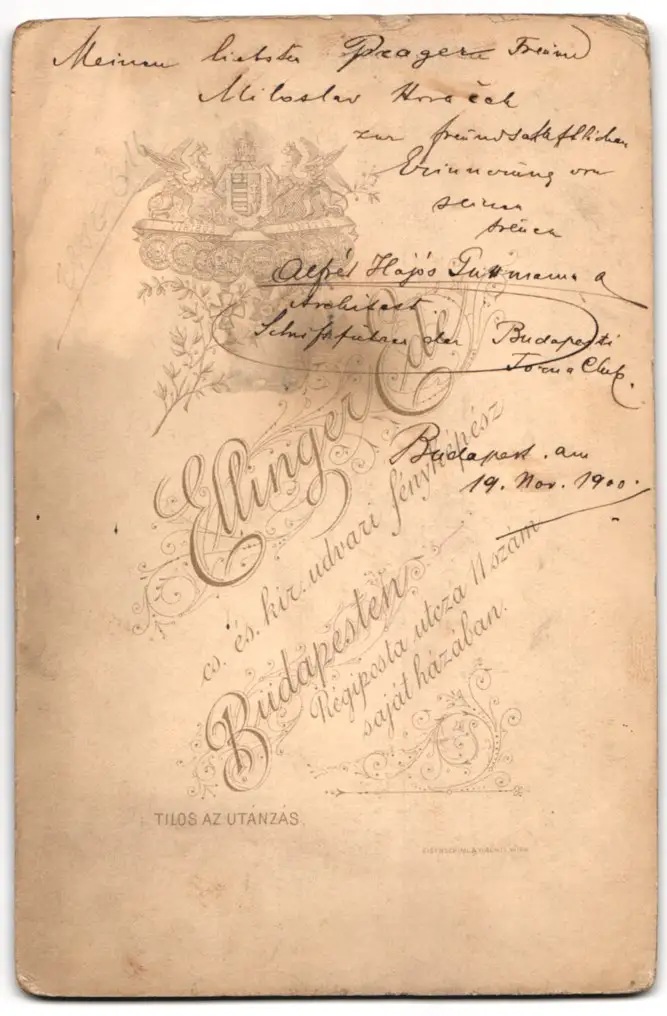 Meinem liebsten Prager Freund
Miloslav Horaček
zur freundschaftlichen
Erinnerung von
seinem
treuen
Alfréd Hajós Guttmann
Architect
Schriftführer der Budapesti
Torna Club.
Budapest. am
19. Nov. 1900.
Ellinger Ede
cs. és. kir. udvari fényképész
Budapesten
Régiposta utcza 11 szám
saját házában.
TILOS AZ UTÁNZÁS